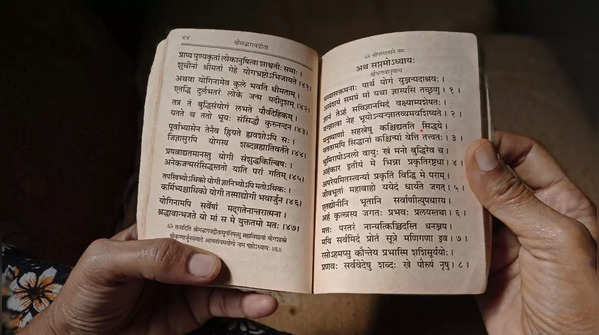 श्रीमद्भगवद्गीता
प्राप्य पुण्यकृतां लोकानुषित्वा शाश्वतीः समाः ।
शुचीनां श्रीमतां गेहे योगभ्रष्टोऽभिजायते ।४१।
अथवा योगिनामेव कुले भवति धीमताम् ।
एतद्धि दुर्लभतरं लोके जन्म यदीदृशम् ।४२।
तत्र तं बुद्धिसंयोगं लभते पौर्वदेहिकम् ।
यतते च ततो भूयः संसिद्धौ कुरुनन्दन ।४३।
पूर्वाभ्यासेन तेनैव ह्रियते ह्यवशोऽपि सः ।
जिज्ञासुरपि योगस्य शब्दब्रह्मातिवर्तते ।४४।
प्रयत्नाद्यतमानस्तु योगी संशुद्धकिल्बिषः ।
अनेकजन्मसंसिद्धस्ततो याति परां गतिम् ।४५।
तपस्विभ्योऽधिको योगी ज्ञानिभ्योऽपि मतोऽधिकः ।
कर्मिभ्यश्चाधिको योगी तस्माद्योगी भवार्जुन ।४६।
योगिनामपि सर्वेषां मद्गतेनान्तरात्मना ।
श्रद्धावान्भजते यो मां स मे युक्ततमो मतः ।४७।
अथ सप्तमोऽध्यायः
श्रीभगवानुवाच
मय्यासक्तमनाः पार्थ योगं युञ्जन्मदाश्रयः ।
असंशयं समग्रं मां यथा ज्ञास्यसि तच्छृणु । १ ।
ज्ञानं तेऽहं सविज्ञानमिदं वक्ष्याम्यशेषतः ।
यज्ज्ञात्वा नेह भूयोऽन्यज्ज्ञातव्यमवशिष्यते । २ ।
मनुष्याणां सहस्रेषु कश्चिद्यतति सिद्धये ।
यततामपि सिद्धानां कश्चिन्मां वेत्ति तत्त्वतः । ३ ।
भूमिरापोऽनलो वायुः खं मनो बुद्धिरेव च ।
अहंकार इतीयं मे भिन्ना प्रकृतिरष्टधा । ४ ।
अपरेयमितस्त्वन्यां प्रकृतिं विद्धि मे पराम् ।
जीवभूतां महाबाहो ययेदं धार्यते जगत् । ५ ।
एतद्योनीनि भूतानि सर्वाणीत्युपधारय ।
अहं कृत्स्नस्य जगतः प्रभवः प्रलयस्तथा । ६ ।
मत्तः परतरं नान्यत्किञ्चिदस्ति धनञ्जय ।
मयि सर्वमिदं प्रोतं सूत्रे मणिगणा इव । ७ ।
रसोऽहमप्सु कौन्तेय प्रभास्मि शशिसूर्ययोः ।
प्रणवः सर्ववेदेषु शब्दः खे पौरुषं नृषु । ८ ।